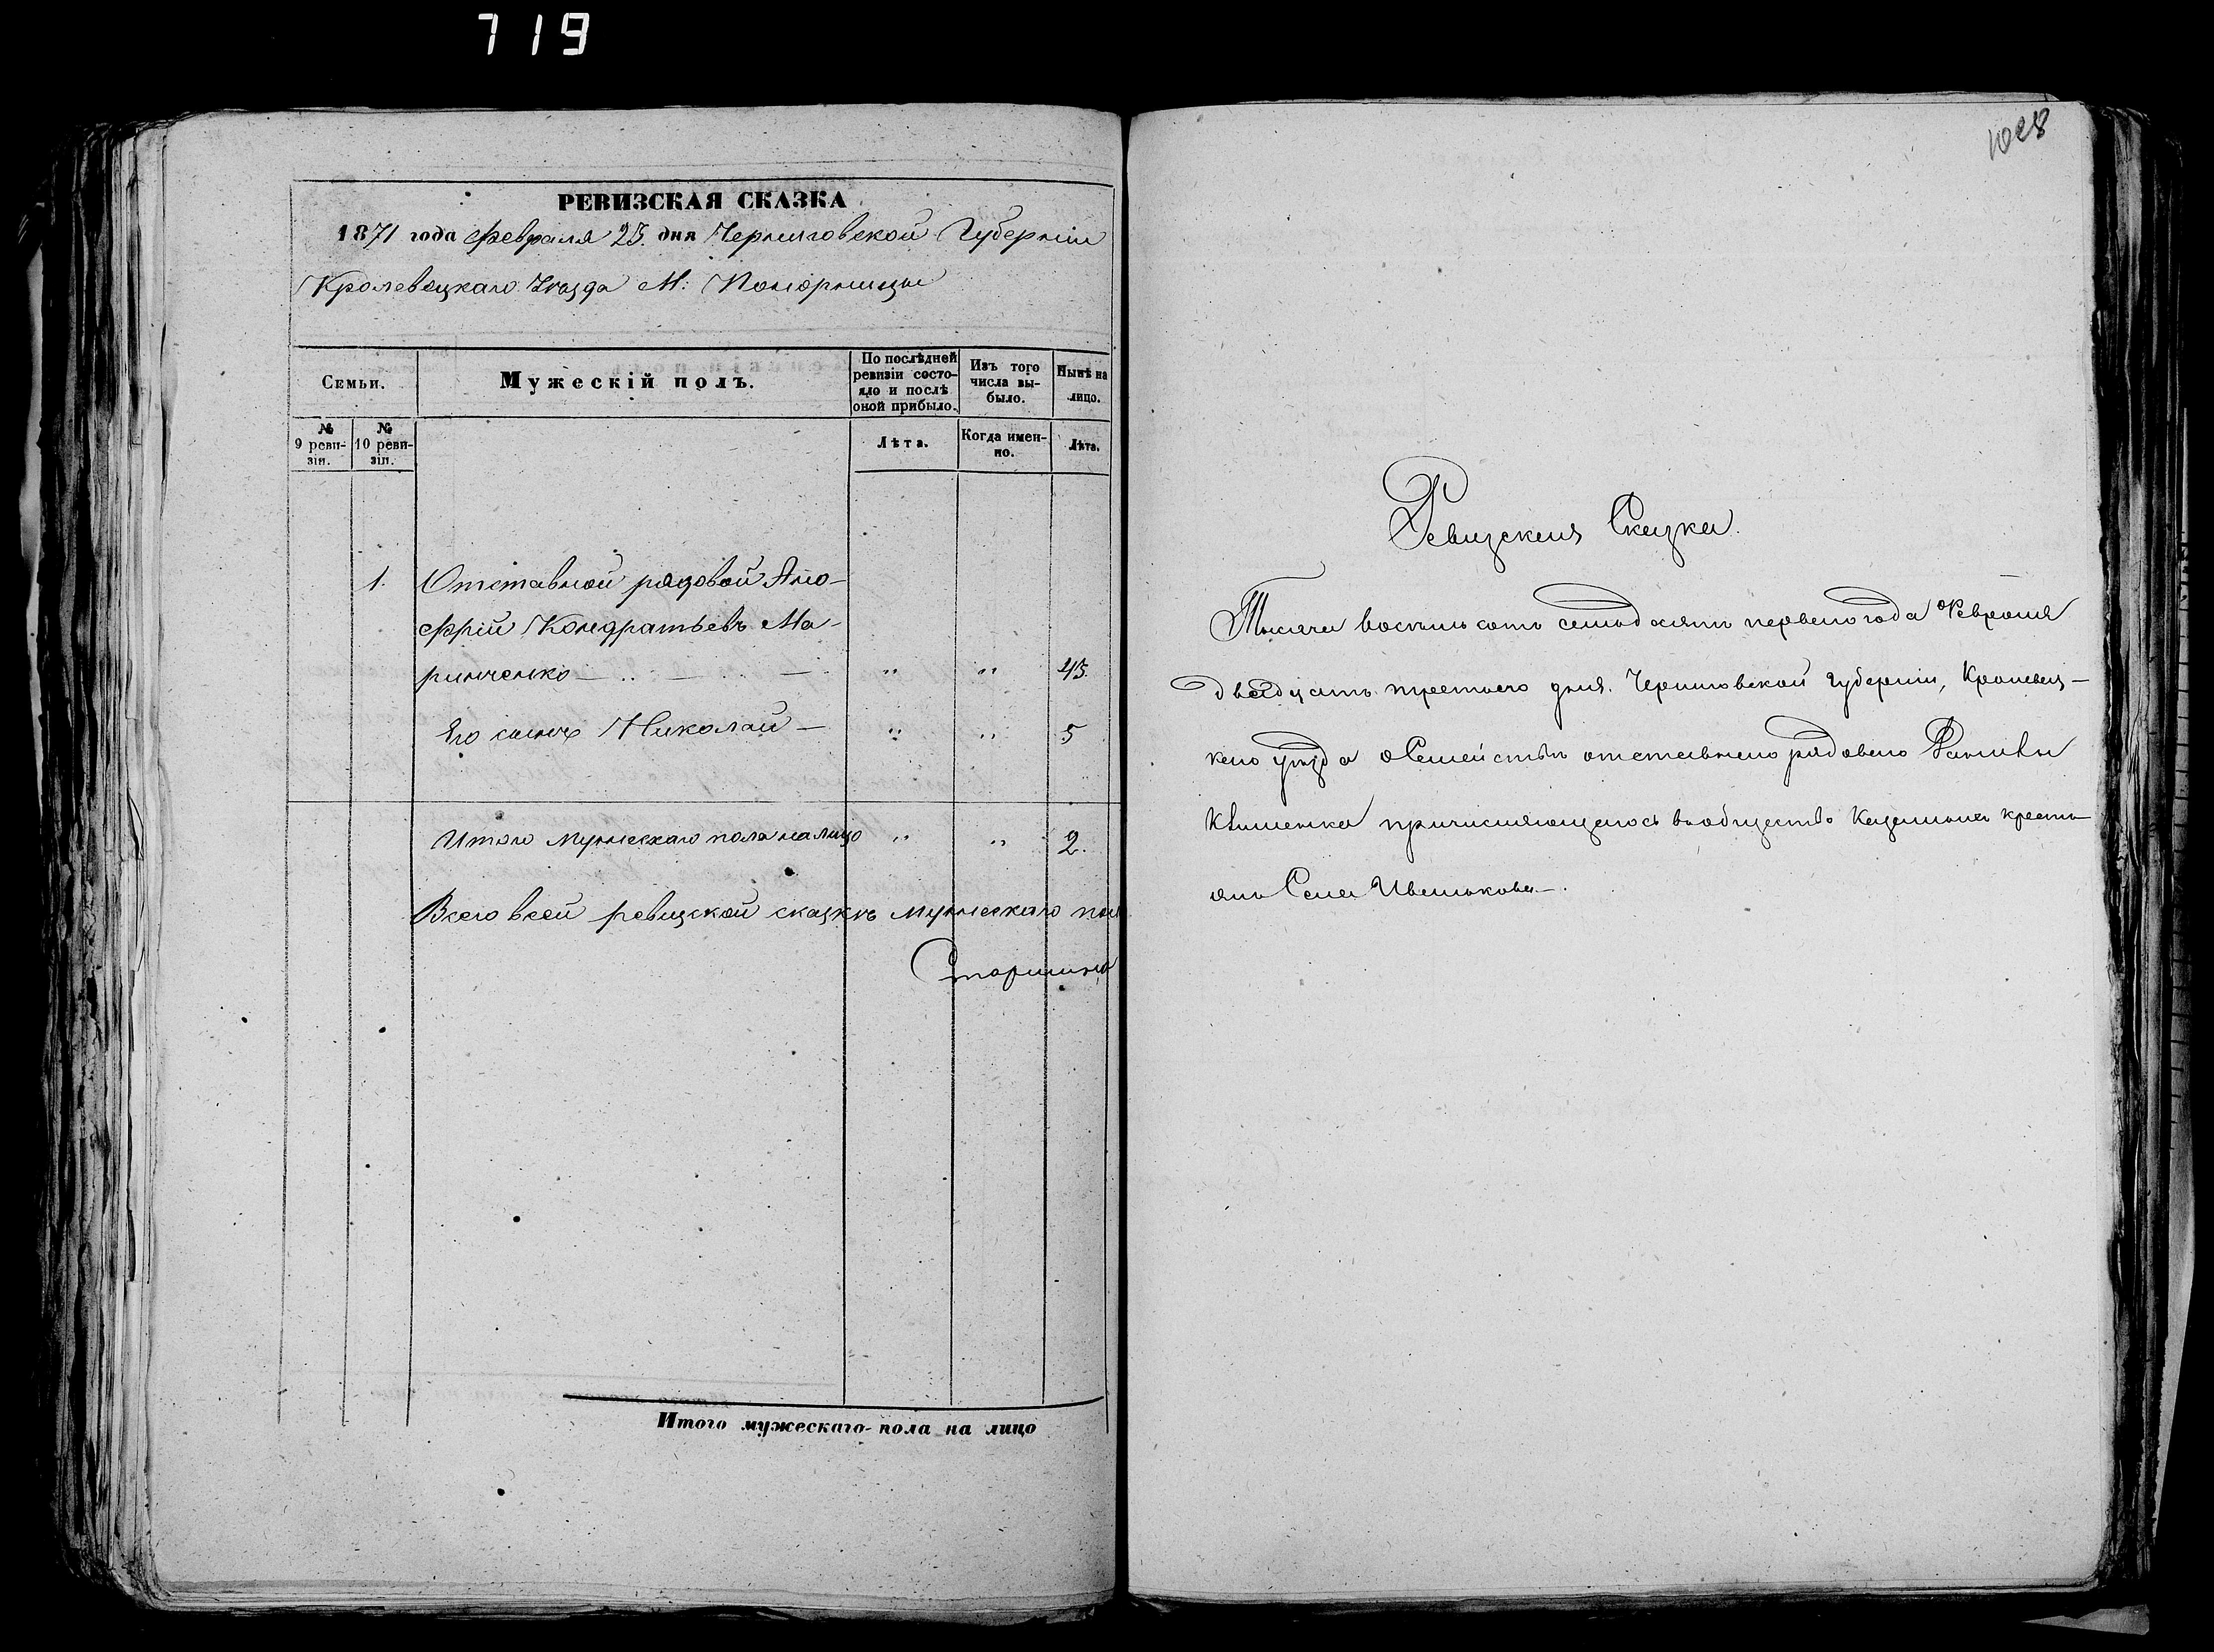 719
РЕВИЗСКАЯ СКАЗКА
1871 года Февраля 23. дня Черниговской Губерніи
Кролевецкаго Уѣзда М: Понорницы
Семьи.
Мужескій полъ.
По послѣдней ревизіи состояло и послѣ оной прибыло.
Изъ того числа выбыло.
Нынѣ на лицо.
№ 9 ревизіи.
№ 10 ревизіи.
Лѣта.
Когда именно.
Лѣта.
1. Отставной рядовой Ано-
фрій Кондратьевъ Ма-
ринченко — .. — — " " 43.
Его сынъ Николай — " " 5
Итого мужескаго пола на лицо " " 2.
Всего в сей ревизской сказкѣ мужескаго пол
Старшина
Итого мужескаго пола на лицо
1028
Ревизская Сказка.
Тысяча восемьсотъ семьдесятъ перваго года Февраля
двадцать третьяго дня. Черниговской губерніи, Кролевец-
каго уѣзда о Семействѣ отставнаго рядоваго
причисляющагося въ общество Казенныхъ кресть
янъ Села